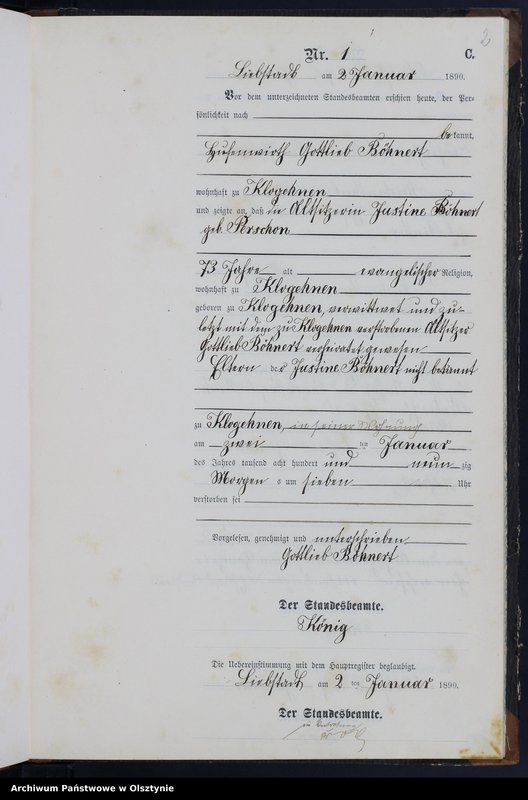 2
Nr. 1 C.
Liebstadt am 2 Januar 1890.
Vor dem unterzeichneten Standesbeamten erschien heute, der Per-
sönlichkeit nach
bekannt,
Hufenwirth Gottlieb Böhnert
wohnhaft zu Klogehnen
und zeigte an, daß die Altsitzerin Justine Böhnert
geb. Perschon
73 Jahre alt evangelischer Religion,
wohnhaft zu Klogehnen
geboren zu Klogehnen, verwittwet und zu-
letzt mit dem zu Klogehnen verstorbenen Altsitzer
Gottlieb Böhnert verheiratet gewesen
Eltern der Justine Böhnert nicht bekannt
zu Klogehnen, in seiner Wohnung
am zwei ten Januar
des Jahres tausend acht hundert und neun zig
Morgens um sieben Uhr
verstorben sei
Vorgelesen, genehmigt und unterschrieben
Gottlieb Böhnert
Der Standesbeamte.
König
Die Uebereinstimmung mit dem Hauptregister beglaubigt.
Liebstadt am 2 ten Januar 1890.
Der Standesbeamte.
in Vertretung
Archiwum Państwowe w Olsztynie